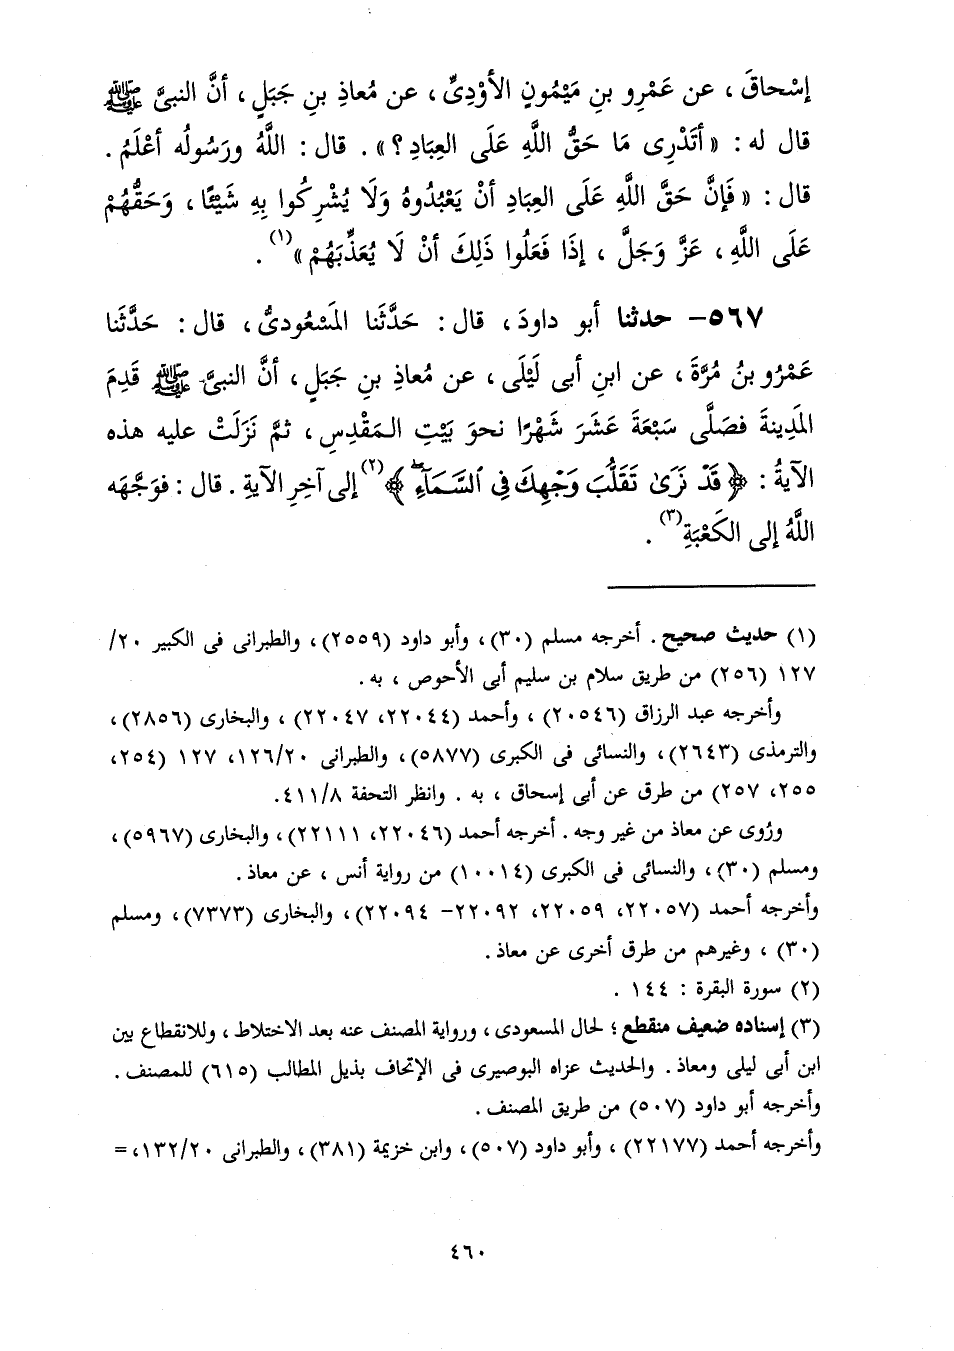 إسْحاقَ ، عن عَمْرِو بنِ مَيْمُونٍ الأوْدِىِّ ، عن مُعاذِ بنِ جَبَلٍ ، أنَّ النبىَّ ﷺ
قال له : « أتَدْرِى مَا حَقُّ اللَّهِ عَلَى العِبَادِ ؟ » . قال : اللَّهُ ورَسُولُه أعْلَمُ .
قال : « فَإنَّ حَقَّ اللَّهِ عَلَى العِبَادِ أنْ يَعْبُدُوهُ وَلَا يُشْرِكُوا بِهِ شَيْئًا ، وَحَقُّهُمْ
عَلَى اللَّهِ ، عَزَّ وَجَلَّ ، إذَا فَعَلُوا ذَلِكَ أنْ لَا يُعَذِّبَهُمْ »(١) .
٥٦٧- حدثنا أبو داودَ ، قال : حَدَّثَنا المَسْعُودىُّ ، قال : حَدَّثَنا
عَمْرُو بنُ مُرَّةَ ، عن ابنِ أبى لَيْلَى ، عن مُعاذِ بنِ جَبَلٍ ، أنَّ النبىَّ ﷺ قَدِمَ
المَدِينةَ فصَلَّى سَبْعَةَ عَشَرَ شَهْرًا نحوَ بَيْتِ المَقْدِسِ ، ثمَّ نَزَلَتْ عليه هذه
الآيةُ : ﴿ قَدْ نَرَىٰ تَقَلُّبَ وَجْهِكَ فِى ٱلسَّمَآءِۖ ﴾(٢) إلى آخِرِ الآيةِ . قال : فوَجَّهَه
اللَّهُ إلى الكَعْبَةِ(٣) .
(١) حديث صحيح . أخرجه مسلم (٣٠) ، وأبو داود (٢٥٥٩) ، والطبرانى فى الكبير ٢٠/
١٢٧ (٢٥٦) من طريق سلام بن سليم أبى الأحوص ، به .
وأخرجه عبد الرزاق (٢٠٥٤٦) ، وأحمد (٢٢٠٤٤، ٢٢٠٤٧) ، والبخارى (٢٨٥٦) ،
والترمذى (٢٦٤٣) ، والنسائى فى الكبرى (٥٨٧٧) ، والطبرانى ١٢٦/٢٠، ١٢٧ (٢٥٤،
٢٥٥، ٢٥٧) من طرق عن أبى إسحاق ، به . وانظر التحفة ٤١١/٨.
ورُوى عن معاذ من غير وجه . أخرجه أحمد (٢٢٠٤٦، ٢٢١١١) ، والبخارى (٥٩٦٧) ،
ومسلم (٣٠) ، والنسائى فى الكبرى (١٠٠١٤) من رواية أنس ، عن معاذ .
وأخرجه أحمد (٢٢٠٥٧، ٢٢٠٥٩، ٢٢٠٩٢- ٢٢٠٩٤) ، والبخارى (٧٣٧٣) ، ومسلم
(٣٠) ، وغيرهم من طرق أخرى عن معاذ .
(٢) سورة البقرة : ١٤٤ .
(٣) إسناده ضعيف منقطع ؛ لحال المسعودى ، ورواية المصنف عنه بعد الاختلاط ، وللانقطاع بين
ابن أبى ليلى ومعاذ . والحديث عزاه البوصيرى فى الإتحاف بذيل المطالب (٦١٥) للمصنف .
وأخرجه أبو داود (٥٠٧) من طريق المصنف .
وأخرجه أحمد (٢٢١٧٧) ، وأبو داود (٥٠٧) ، وابن خزيمة (٣٨١) ، والطبرانى ١٣٢/٢٠، =
٤٦٠